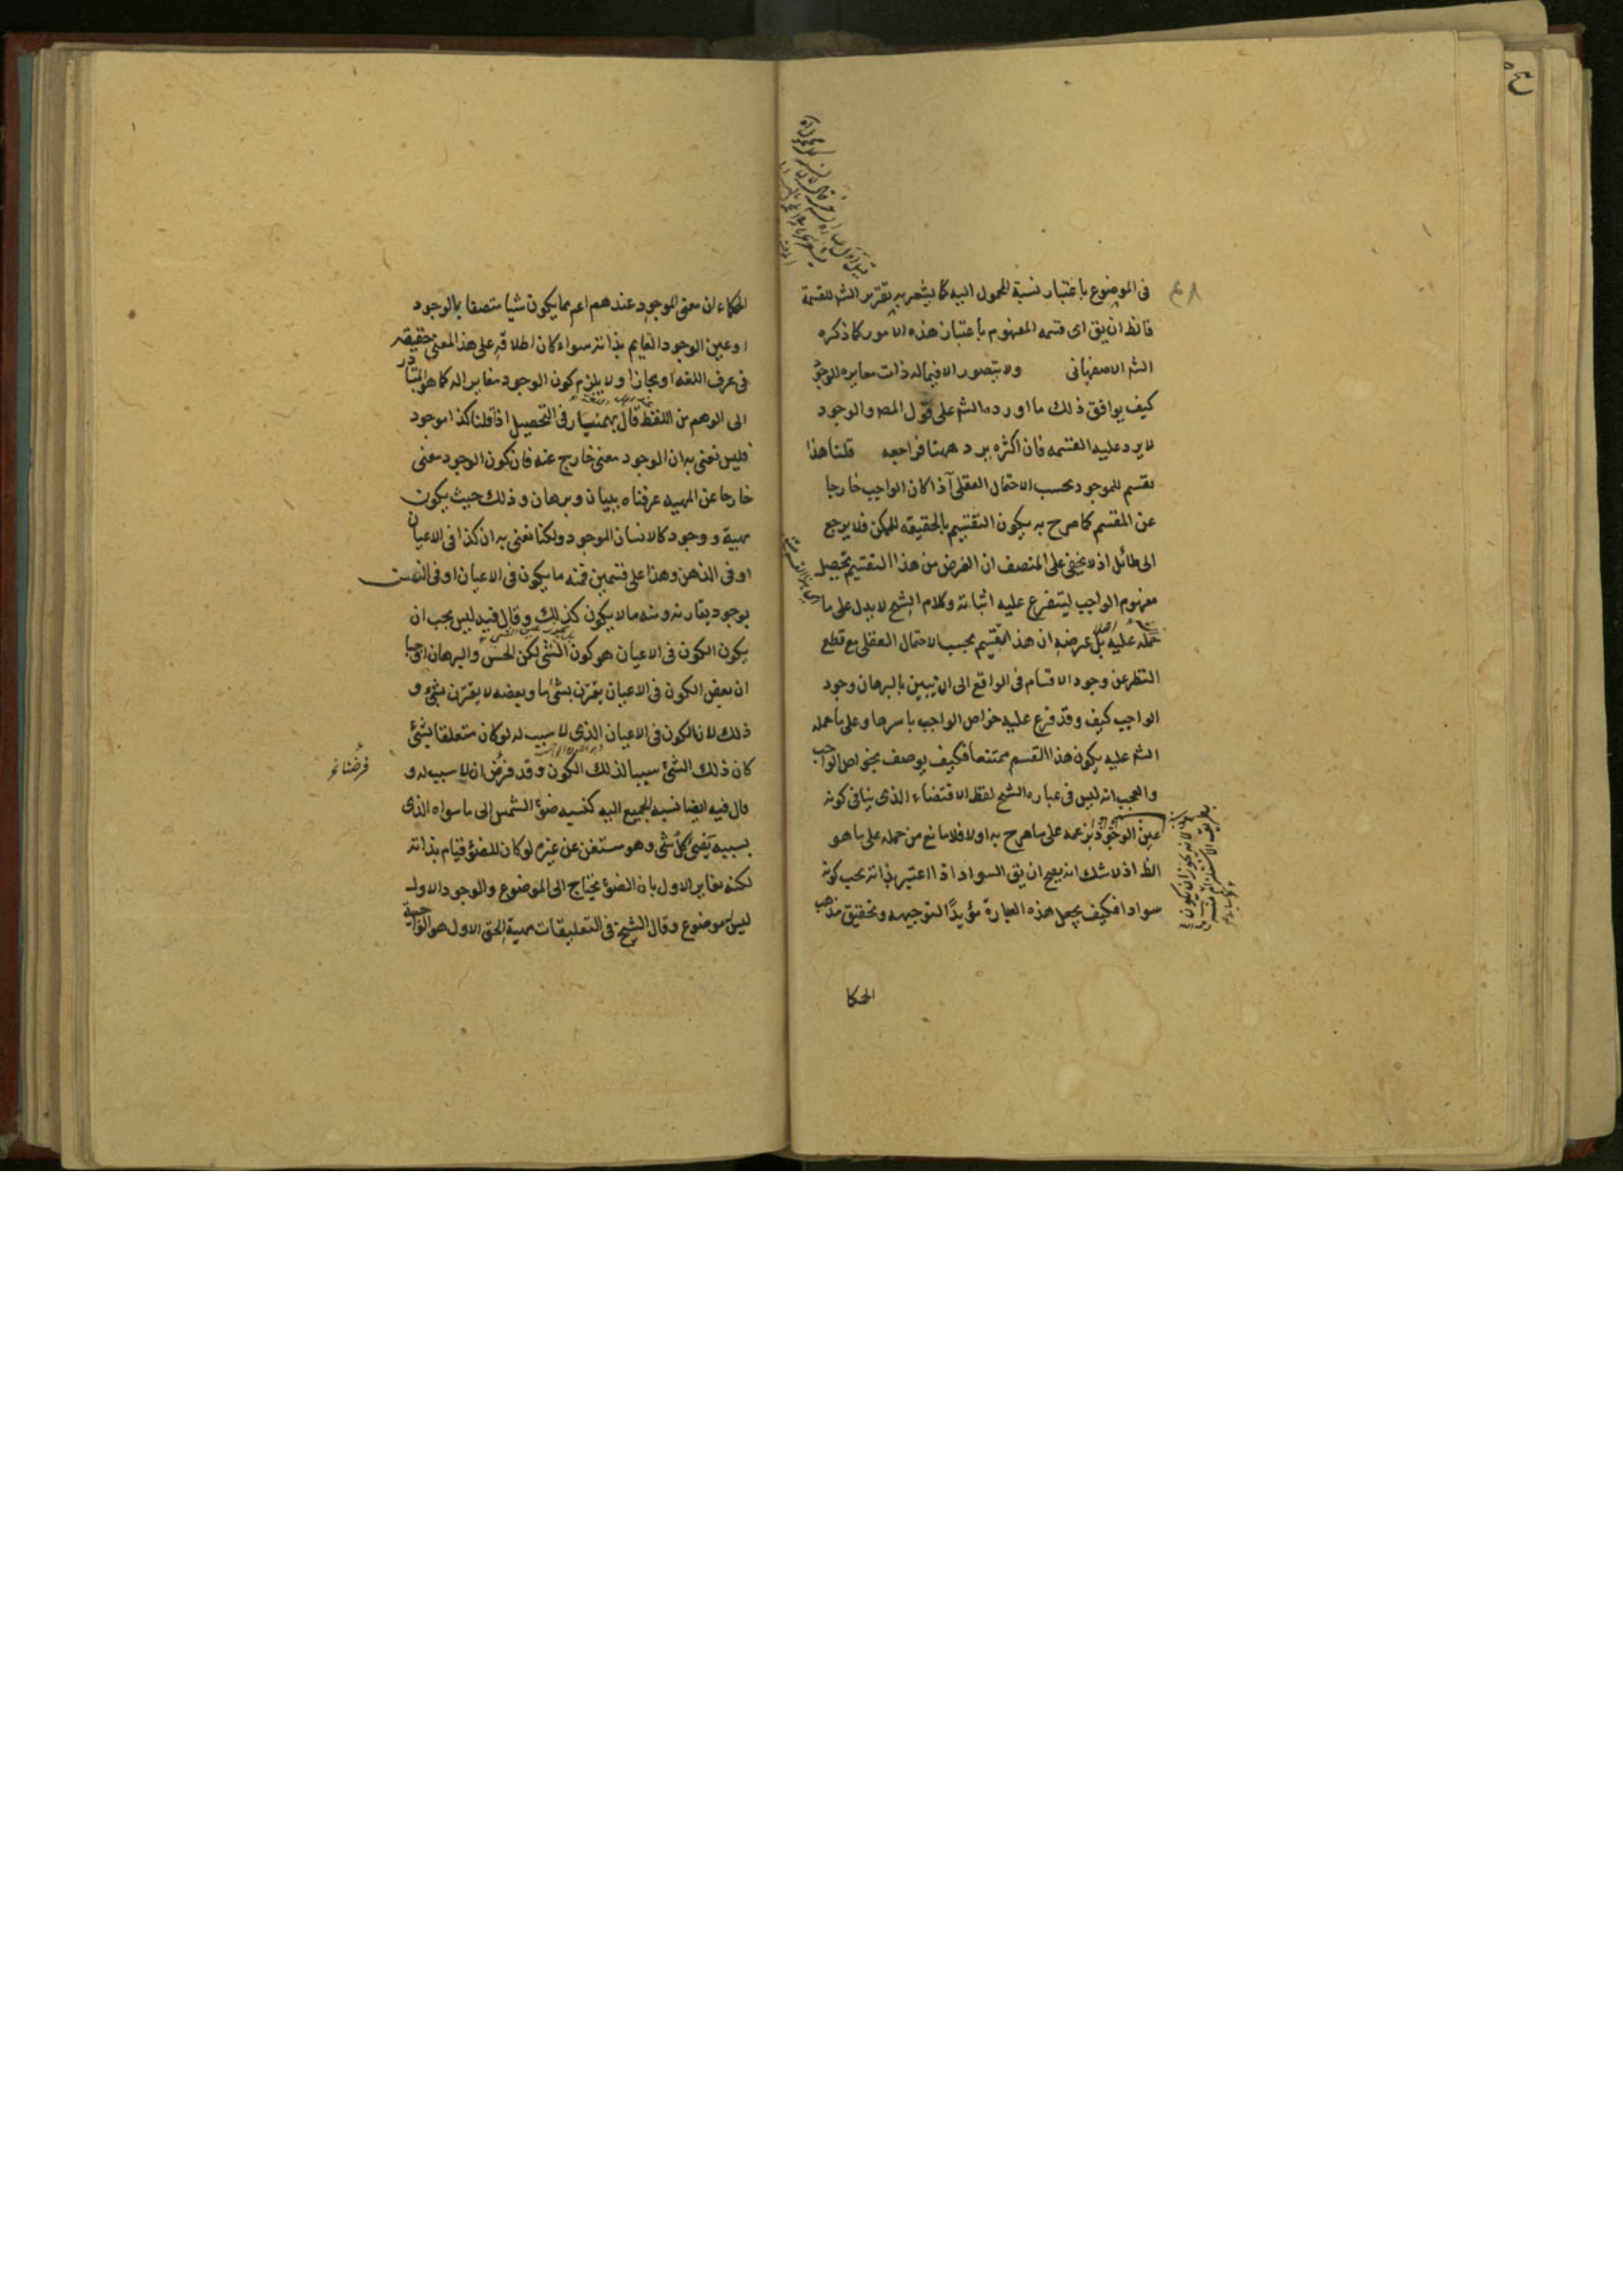 فى الموضوع باعتبار نسبة المحمول اليه كما يشعر به تقرير الشم للقسمة
فالظ ان يق اى قسمه المفهوم باعتبار هذه الامور كما ذكره
الشم الاصفهانى ولا يتصور الا فيما له ذات مغايره للوجود
كيف يوافق ذلك ما اورده الشم على قول المصـ والوجود
لا يرد عليه القسمه فان اكثره يرد ههنا فراجعه قلنا هذا
تقسيم للموجود بحسب الاحتمال العقلى آذا كان الواجب خارجا
عن المقسم كما صرح به يكون التقسيم بالحقيقه للممكن فلا يرجع
الى طائل اذ لا يخفى على المنصف ان الغرض من هذا التقسيم تحصيل
مفهوم الواجب ليتفرع عليه اثباته وكلام الشيخ لا يدل على ما
حمله عليه بل غرضه ان هذا التقسيم بحسب الاحتمال العقلى مع قطع
النظر عن وجود الاقسام فى الواقع الى ان يبين بالبرهان وجود
الواجب كيف وقد فرع عليه خواص الواجب باسرها وعلى ما حمله
الشم عليه يكون هذا القسم ممتنعا فكيف يوصف بخواص الواجب
والعجب انه ليس فى عباره الشيخ لفظ الاقتضاء الذى ينافى كونه
عين الوجود بزعمه على ما صرح به اولا فلا مانع من حمله على ما هو
الظ اذ لا شك انه يصح ان يق السواد اذا اعتبر بذاته يجب كونه
سوادا فكيف يجعل هذه العبارة مؤيدًا لتوجيهه وتحقيق مذهب
الحكا
الحكماء ان معنى الموجود عندهم اعم مما يكون شيا متصفا بالوجود
او عين الوجود القايم بذاته سواء كان اطلاقه على هذا المعنى حقيقة
فى عرف اللغه او مجازا ولا يلزم كون الوجود مغايرا له كما هو المتبادر
الى الوهم من اللفظ قال بهمنيار فى التحصيل اذا قلنا كذا موجود
فليس نعنى به ان الوجود معنى خارج عنه فان كون الوجود معنى
خارجا عن المهيه عرفناه ببيان وبرهان وذلك حيث يكون
مهية ووجود كالانسان الموجود ولكنا نعنى به ان كذا فى الاعيان
او فى الذهن وهذا على قسمين فمنه ما يكون فى الاعيان او فى النفس
بوجود يقارنه ومنه ما لا يكون كذلك وقال فيه ليس يجب ان
يكون الكون فى الاعيان هو كون الشئ لكن الحس والبرهان اوجبا
ان بعض الكون فى الاعيان يقترن بشئ ما وبعضه لا يقترن بشئ و
ذلك لان الكون فى الاعيان الذى لا سبب له لو كان متعلقا بشئ
كان ذلك الشئ سببا لذلك الكون وقد فرض ان لا سبب له و
فرضنا نخ
قال فيه ايضا نسبه الجميع اليه كنسبه ضوء الشمس الى ما سواه الذى
بسببه يضئ كل شئ وهو مستغن عن غيره لو كان للضوء قيام بذاته
لكنه مغاير الاول بان الضوء يحتاج الى الموضوع والوجود الاول
ليس له موضوع وقال الشيخ فى التعليقات مهية الحق الاول هو الواجبية